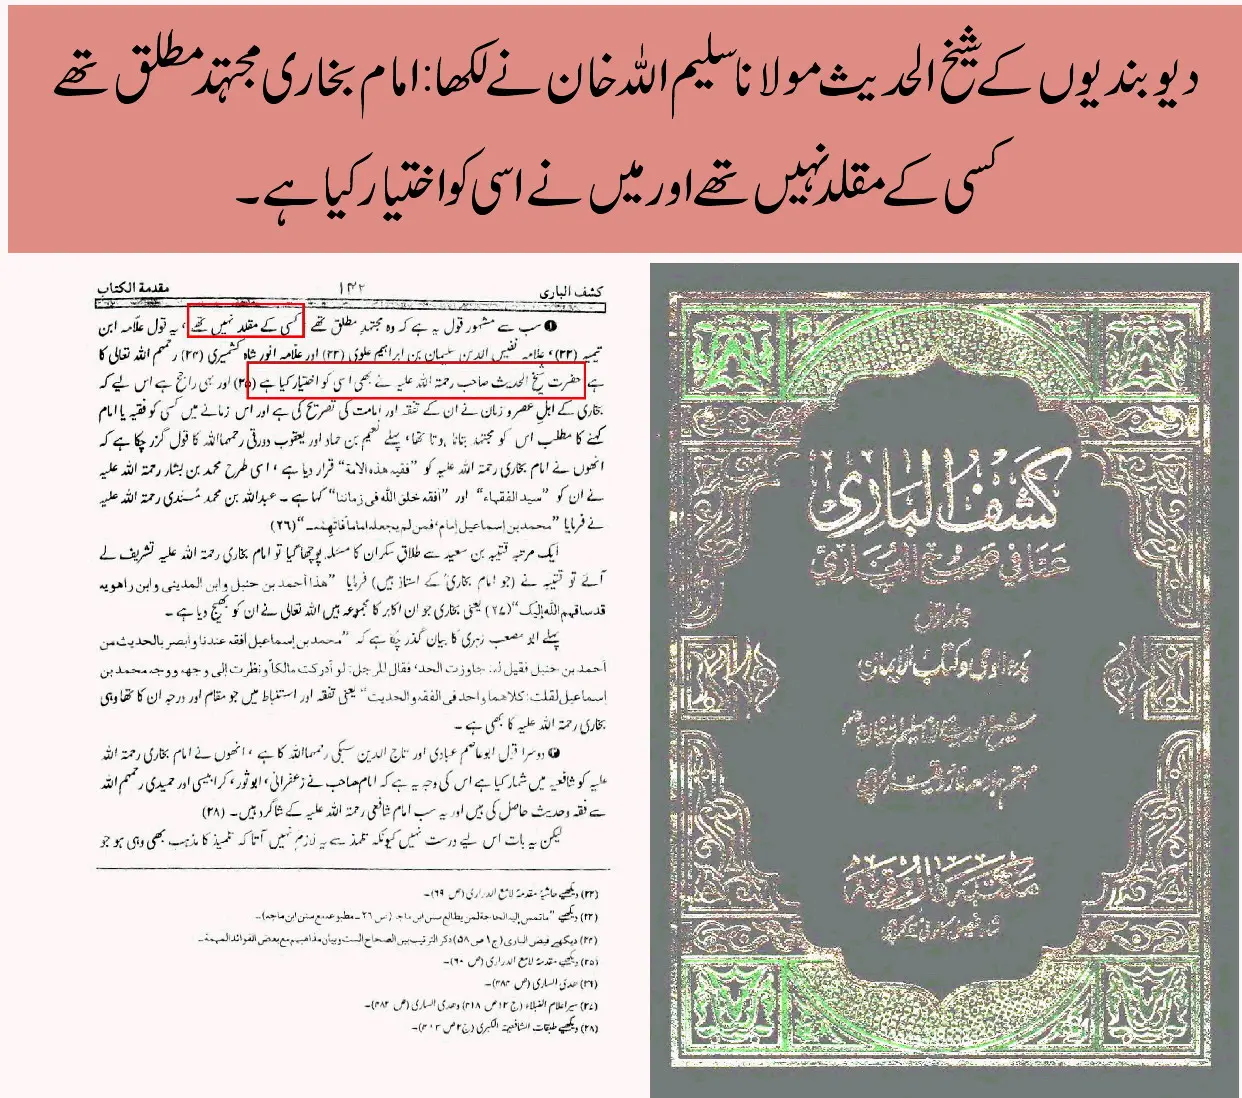 دیوبندیوں کے شیخ الحدیث مولانا سلیم اللہ خان نے لکھا: امام بخاری مجتہد مطلق تھے
کسی کے مقلد نہیں تھے اور میں نے اسی کو اختیار کیا ہے۔
کشف الباری
۱۴۲
مقدمة الکتاب
❶ سب سے مشہور قول یہ ہے کہ وہ مجتہد مطلق تھے کسی کے مقلد نہیں تھے ، یہ قول علّامہ ابن
تیمیہ (۲۲)، علامہ نفیس الدین سلیمان بن ابراہیم علوی (۲۳) اور علّامہ انور شاہ کشمیری (۲۴) رحمہم اللہ تعالی کا
ہے حضرت شیخ الحدیث صاحب رحمۃ اللہ علیہ نے بھی اسی کو اختیار کیا ہے (۲۵) اور یہی راجح ہے اس لیے کہ
بخاری کے اہلِ عصر و زمان نے ان کے تفقہ اور امامت کی تصریح کی ہے اور اس زمانے میں کسی کو فقیہ یا امام
کہنے کا مطلب اس کو مجتہد بتانا ہوتا تھا، پہلے نعیم بن حماد اور یعقوب دورقی رحمہما اللہ کا قول گزر چکا ہے کہ
انھوں نے امام بخاری رحمۃ اللہ علیہ کو "فقیہ هذه الامة" قرار دیا ہے ، اسی طرح محمد بن بشار رحمۃ اللہ علیہ
نے ان کو "سید الفقہاء" اور "افقه خلق اللّٰه فی زماننا" کہا ہے ۔ عبداللہ بن محمد مُسندی رحمۃ اللہ علیہ
نے فرمایا "محمد بن إسماعیل إمام، فمن لم یجعله إماما فاتهمه۔" (۲۶)
ایک مرتبہ قتیبہ بن سعید سے طلاق سکران کا مسئلہ پوچھا گیا تو امام بخاری رحمۃ اللہ علیہ تشریف لے
آئے تو قتیبہ نے (جو امام بخاری کے استاز ہیں) فرمایا "هذا أحمد بن حنبل وابن المدینی وابن راهویه
قد ساقهم اللّٰه إلیک" (۲۷) یعنی بخاری جو ان اکابر کا مجموعہ ہیں اللہ تعالی نے ان کو بھیج دیا ہے ۔
پہلے ابو مصعب زہری کا بیان گذر چکا ہے کہ "محمد بن إسماعیل أفقه عندنا وأبصر بالحدیث من
أحمد بن حنبل فقیل له: جاوزت الحد، فقال للرجل: لو أدرکت مالکاً ونظرت إلی وجهه ووجه محمد بن
إسماعیل لقلت: کلاهما واحد فی الفقه والحدیث" یعنی تفقہ اور استنباط میں جو مقام اور درجہ ان کا تھا وہی
بخاری رحمۃ اللہ علیہ کا بھی ہے ۔
❷ دوسرا قول ابو عاصم عبادی اور تاج الدین سبکی رحمہما اللہ کا ہے ، انھوں نے امام بخاری رحمۃ اللہ
علیہ کو شافعیہ میں شمار کیا ہے اس کی وجہ یہ ہے کہ امام صاحب نے زعفرانی، ابو ثور، کرابیسی اور حمیدی رحمہم اللہ
سے فقہ وحدیث حاصل کی ہیں اور یہ سب امام شافعی رحمۃ اللہ علیہ کے شاگرد ہیں۔ (۲۸)
لیکن یہ بات اس لیے درست نہیں کیونکہ تلمذ سے یہ لازم نہیں آتا کہ تلمیذ کا مذہب بھی وہی ہو جو
(۲۲) دیکھیے حاشیۂ مقدمۂ لامع الدراری (ص ۶۹)۔
(۲۳) دیکھیے "ماتمس إلیه الحاجة لمن یطالع سنن ابن ماجہ (ص ۲۶ ـ مطبوعه مع سنن ابن ماجه)۔
(۲۴) دیکھے فیض الباری (ج ۱ ص ۵۸) ذکر الترتیب بین الصحاح الست وبیان مذاهبهم مع بعض الفوائد المهمة۔
(۲۵) دیکھیے مقدمۂ لامع الدراری (ص ۶۰)۔
(۲۶) هدی الساری (ص ۴۸۳)۔
(۲۷) سیر اعلام النبلاء (ج ۱۲ ص ۴۱۸) وهدی الساری (ص ۴۸۲)۔
(۲۸) دیکھیے طبقات الشافعیة الکبری (ج ۲ ص ۳۰۳)۔
کشف الباری
عما فی صحیح البخاری
جلد اول
بدء الوحی و کتاب الإیمان
شیخ الحدیث مولانا سلیم اللہ خان
مہتمم جامعہ فاروقیہ کراچی
مکتبہ فاروقیہ
شاہ فیصل کالونی کراچی